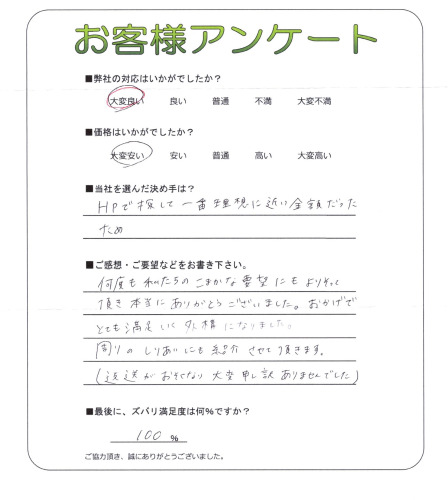 お客様アンケート
■弊社の対応はいかがでしたか？
大変良い 良い 普通 不満 大変不満
■価格はいかがでしたか？
大変安い 安い 普通 高い 大変高い
■当社を選んだ決め手は？
HPで探して一番理想に近い金額だった
ため
■ご感想・ご要望などをお書き下さい。
何度も私たちのこまかな要望にも
頂き本当にありがとうございました。おかげで
とても満足しいく外構になりました。
周りのしりあいにも紹介させて頂きます。
(返送がおそくなり大変申し訳ありませんでした)
■最後に、ズバリ満足度は何%ですか？
100 %
ご協力頂き、誠にありがとうございました。